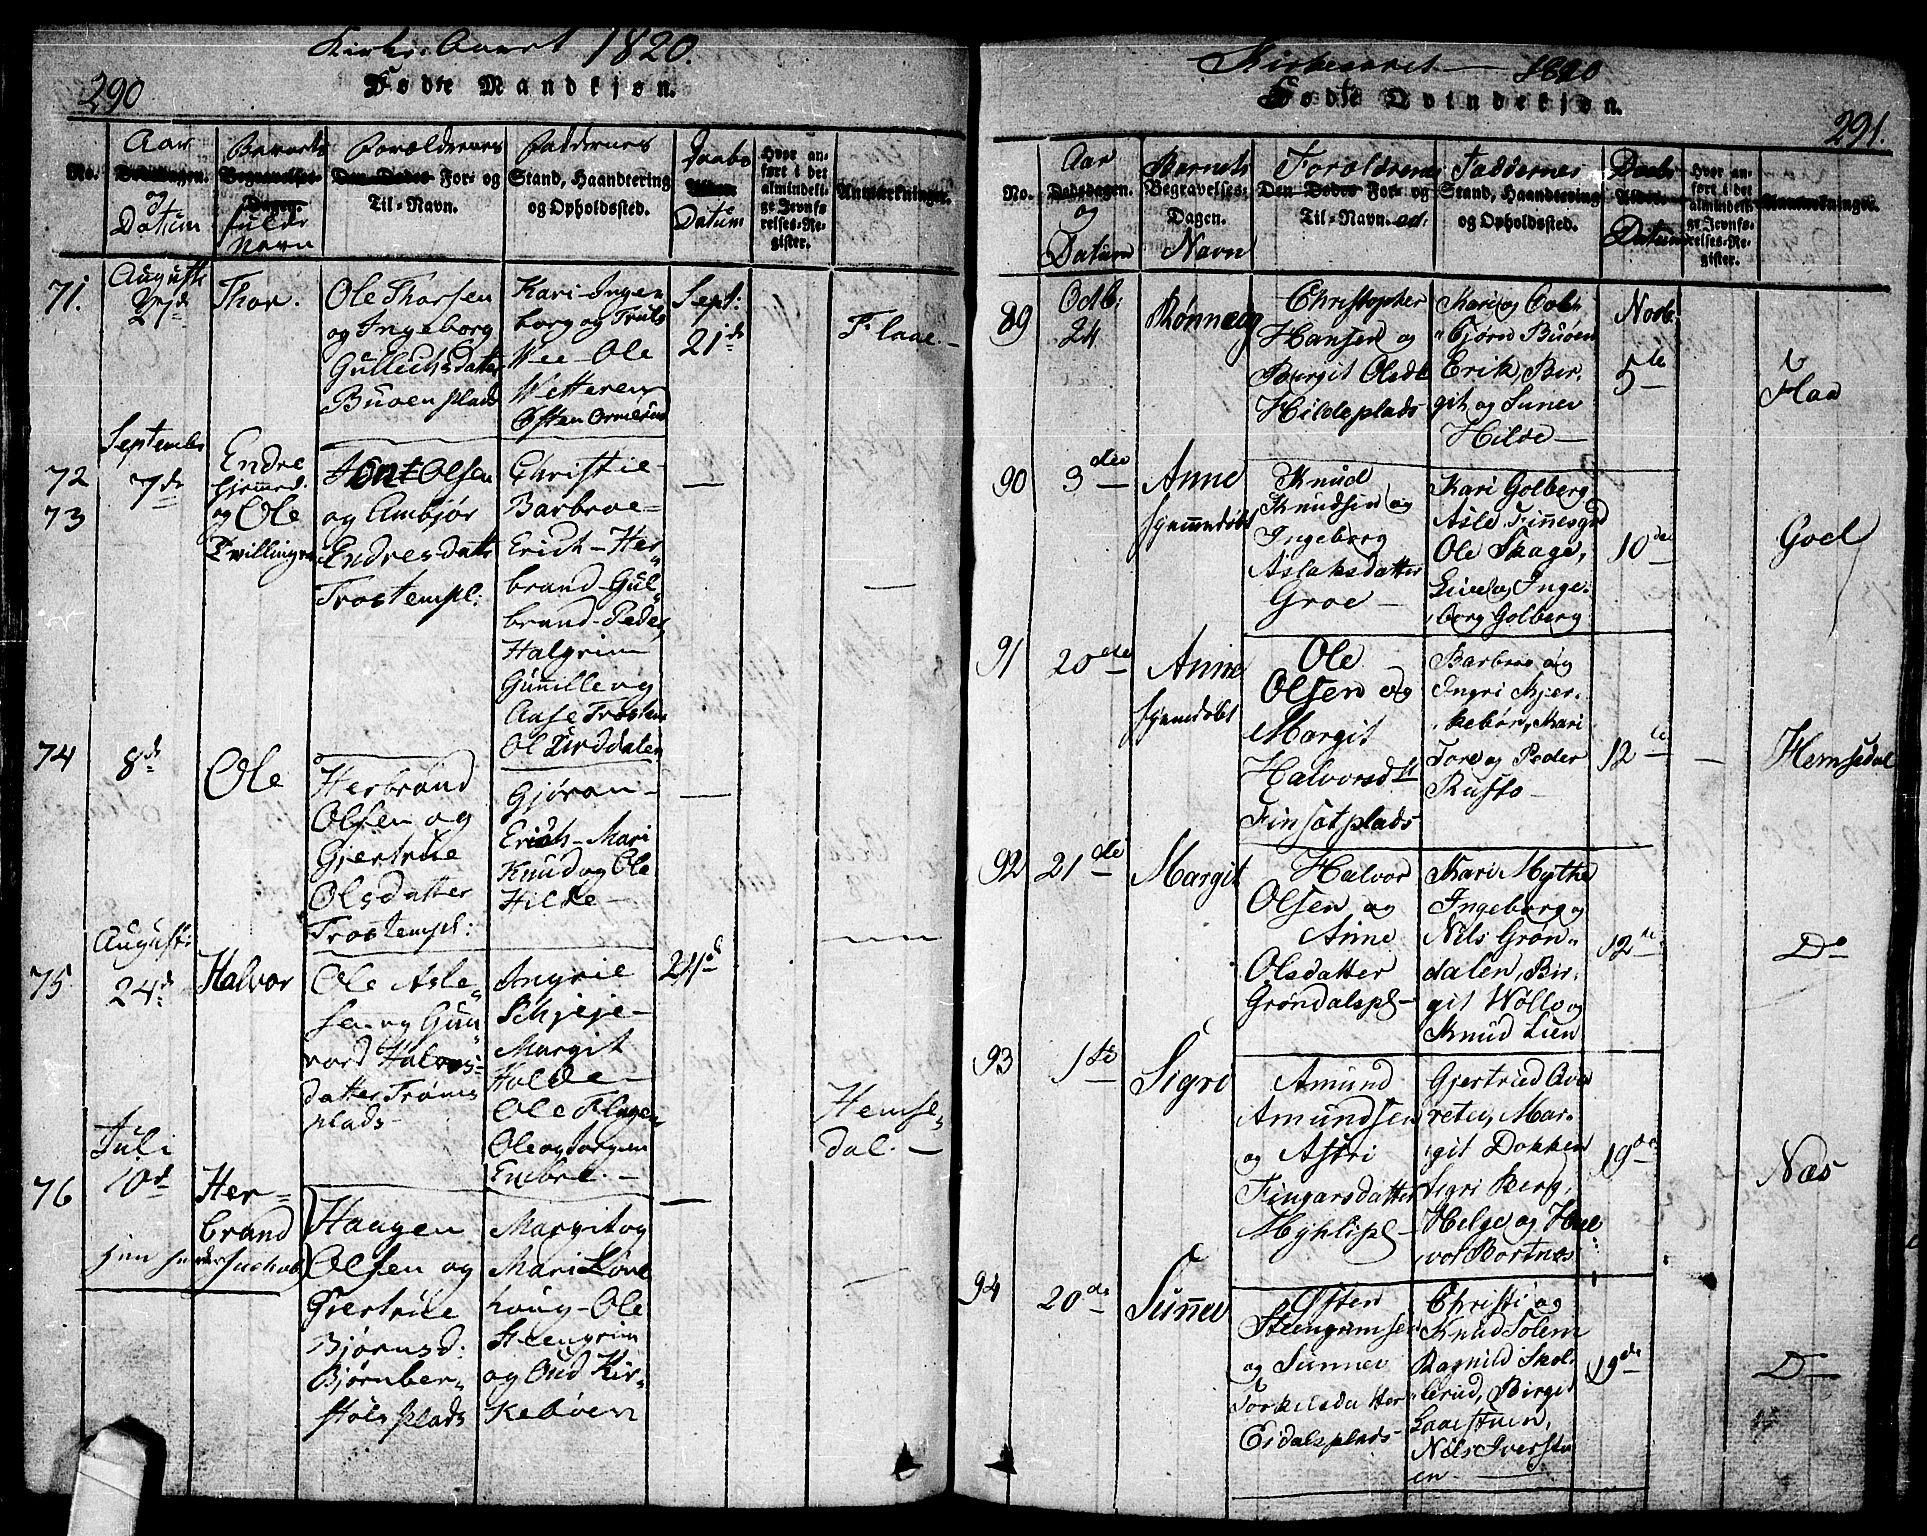 Kirke-Aaret 1820.
290
Fødte Mandkjøn.
No.
Aar
Dødsdagen.
og
Datum
Barnets
Begravelses-
Dagen.
fulde
Navn
Forældrenes
Den Dødes For- og
Til-Navn.
Faddernes
Stand, Haandtering
og Opholdssted.
Daabs
Alder
Datum
Hvor an-
ført i det
almindeli-
ge Jevnfø-
relses-Re-
gister.
Anmærkninger.
71.
Augusti
27de
Thor.
Ole Thorsen
og Ingeborg
Gullechsdatter
Buøen plads
Kari-Inge-
borg og Truls
Wee-Ole
Wetteren
Østen Ormerud
Sept:
21de
Flaae.-
72
73
Septembr
7de
Endre
hjemmed.
og Ole
Tvillinger
Olsen
og Ambjør
Endresdatter
Trostempl:
Christie-
Barbroe-
Erich-Her-
brand-Gul-
brand-Peder,
Halgrim
Gunnille og
Aase Trostem
Ol Lirddalen
74
8de
Ole
Herbrand
Olsen og
Gjertrue
Olsdatter
Trostempl:
Gjøran-
Erich-Mari
Knud og Ole
Hilde-
75
August:
24de
Halvor
Ole Asle-
sen og Gun-
vord Halvors-
datter Trøims
plads-
Ingrie
Schjeje-
Margit
Holde-
Ole Flagen
Ole og Jørgen
Embre.-
21de
Hemse-
dal.-
76
Juli
10de
Her-
brand
Haagen
Olsen og
Gjertrue
Bjørnsd:
Bjørnber-
støls plads
Margit og
Mari Love
Koug-Ole
Steengrim
og Oud Kir-
kebøen
Kirkeaaret - 1820
291.
Fødte Qvindekjøn.
No.
Aar
Dødsdagen.
og
Datum
Barnets
Begravelses-
Dagen.
Navn
Forældrenes
Den Dødes For- og
Til-Navn. ed.
Faddernes
Stand, Haandtering
og Opholdssted.
Daabs
Alder
Datum
Hvor an-
ført i det
almindeli-
ge Jevnfø-
relses-Re-
gister.
Anmærkninger.
89
Octb:
24
Rønnaug
Christopher
Hansen og
Birgit Olsdt
Hildeplads
Kari og Col-
bjørn Buøen
Erik, Bir-
git og Sunev
Hilde-
Novb.
5te
Flaa
90
3die
Anne
hjemmedøbt
Knud
Knudsen og
Ingeborg
Aslaksdatter
Groe-
Kari Golberg
Asle Finnesgrd
Ole Skage,
Live og Inge-
borg Golberg
10de
Goel
91
20de
Anne
hjemdøbt
Ole
Olsen og
Margit
Halvorsdtt
Finsetplads
Barbroe og
Ingri Kjer-
kebøn, Kari
Tore og Peder
Rusto-
12te
Hemsedal
92
21de
Margit
Halvor
Olsen og
Anne
Olsdatter
Grøndalspl-
Kari Mythe
Ingeborg og
Nils Grøn-
dalen, Bir-
git Wøllo og
Knud Lien
12te
Do
93
1ste
Sigri
Amund
Amundsen
og Astri
Fingarsdatter
Myhlipl-
Gjertrud Qve
reten, Mar-
git Dokken
Sigri Berg,
Helge og Hal
vor Bortnes
19de
Næs
94
20de
Sunnev
Østen
Steengrimsen
og Sunnev
Torkelsdatter
Eidalsplads-
Christi og
Knud Solem
Ragnild Skol-
lerud, Birgit
Laaestuen,
Nils Iverstu
en
19de
Do